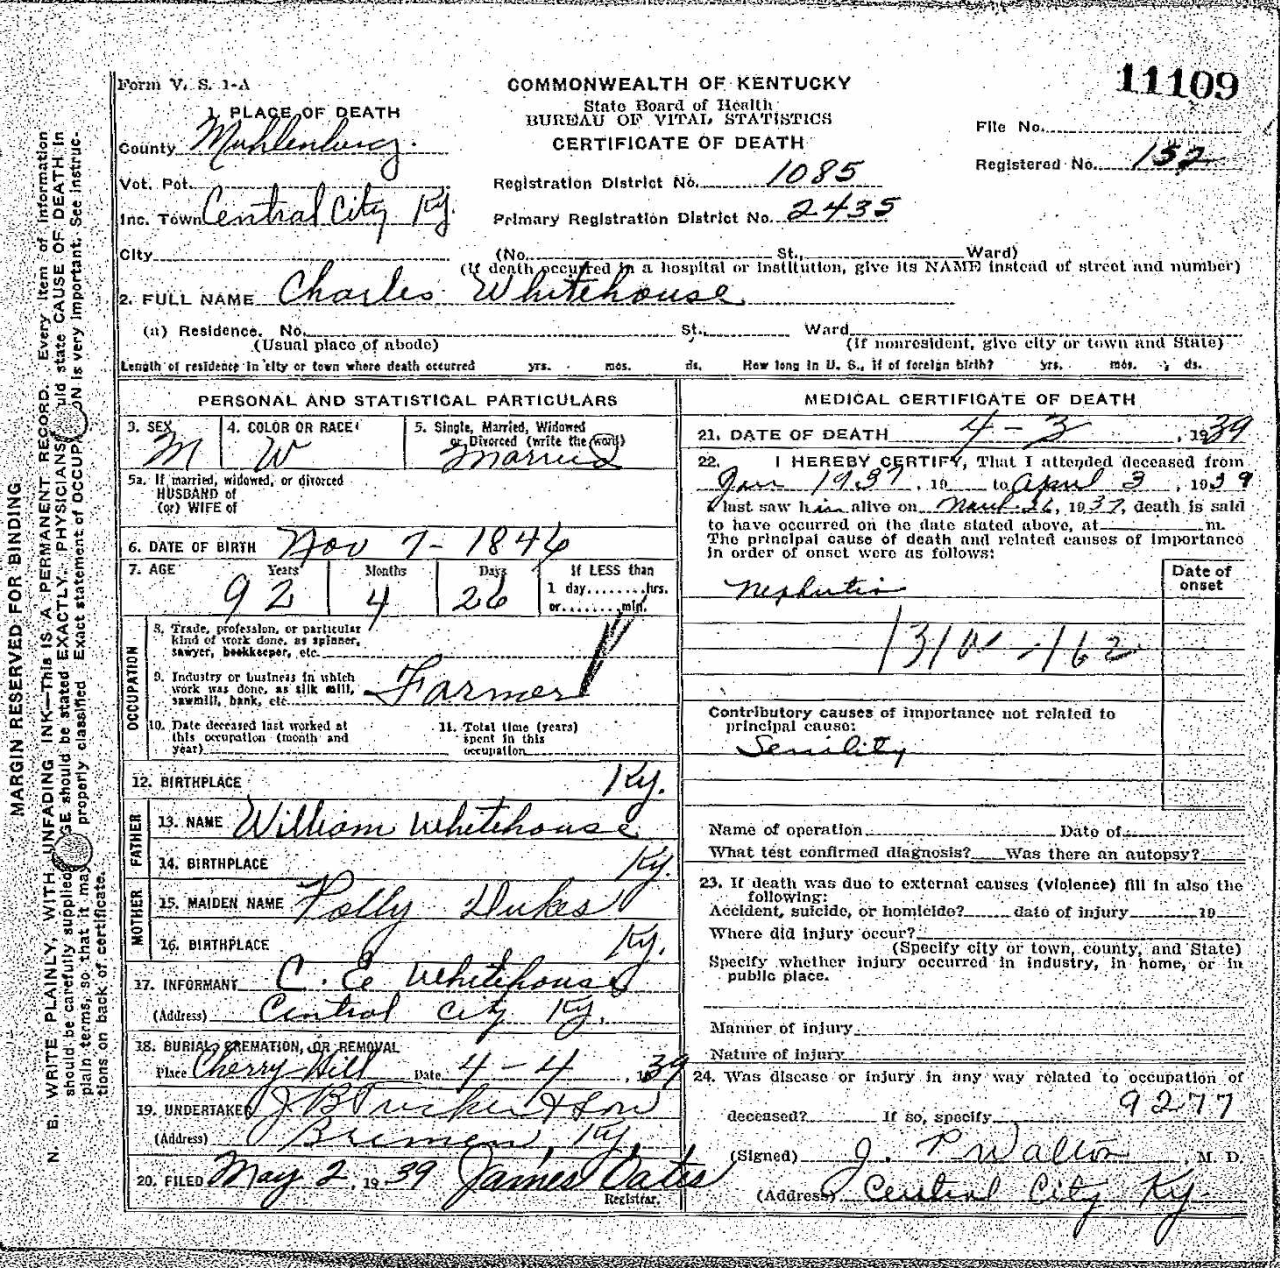 Form V. S. 1-A
COMMONWEALTH OF KENTUCKY
State Board of Health
BUREAU OF VITAL STATISTICS
CERTIFICATE OF DEATH
11109
File No.
Registered No. 152
1. PLACE OF DEATH
County Muhlenburg.
Vot. Pct.
Inc. Town Central City Ky.
City
Registration District No. 1085
Primary Registration District No. 2435
(No. St., Ward)
(If death occurred in a hospital or institution, give its NAME instead of street and number)
2. FULL NAME Charles Whitehouse
(a) Residence. No. St., Ward
(Usual place of abode) (If nonresident, give city or town and State)
Length of residence in city or town where death occurred yrs. mos. ds. How long in U. S., if of foreign birth? yrs. mos. ds.
PERSONAL AND STATISTICAL PARTICULARS
3. SEX 4. COLOR OR RACE 5. Single, Married, Widowed
or Divorced (write the word)
M W Married
5a. If married, widowed, or divorced
HUSBAND of
(or) WIFE of
6. DATE OF BIRTH Nov 7 - 1846
7. AGE Years Months Days If LESS than
1 day........hrs.
or........min.
92 4 26
OCCUPATION
8. Trade, profession, or particular
kind of work done, as spinner,
sawyer, bookkeeper, etc.
9. Industry or business in which
work was done, as silk mill,
sawmill, bank, etc. Farmer
10. Date deceased last worked at
this occupation (month and
year)
11. Total time (years)
spent in this
occupation
12. BIRTHPLACE Ky.
FATHER
13. NAME William Whitehouse
14. BIRTHPLACE Ky.
MOTHER
15. MAIDEN NAME Polly Dukes
16. BIRTHPLACE Ky.
17. INFORMANT C. E Whitehouse
(Address) Central City Ky.
18. BURIAL, CREMATION, OR REMOVAL
Place Cherry Hill Date 4 - 4, 1939
19. UNDERTAKER J B Tucker & Son
(Address) Bremen, Ky.
20. FILED May 2, 1939 James Oates
Registrar.
MEDICAL CERTIFICATE OF DEATH
21. DATE OF DEATH 4 - 3, 1939
22. I HEREBY CERTIFY, That I attended deceased from
Jan 1937, 19 to April 3, 1939
I last saw him alive on March 26, 1937, death is said
to have occurred on the date stated above, at m.
The principal cause of death and related causes of importance
in order of onset were as follows:
Date of
onset
Nephritis
162
Contributory causes of importance not related to
principal cause:
Senility
Name of operation Date of
What test confirmed diagnosis? Was there an autopsy?
23. If death was due to external causes (violence) fill in also the
following:
Accident, suicide, or homicide? date of injury 19
Where did injury occur?
(Specify city or town, county, and State)
Specify whether injury occurred in industry, in home, or in
public place.
Manner of injury
Nature of injury
24. Was disease or injury in any way related to occupation of
9277
deceased? If so, specify
(Signed) J. P Walton, M. D.
(Address) Central City Ky
MARGIN RESERVED FOR BINDING
N. B. WRITE PLAINLY, WITH UNFADING INK—THIS IS A PERMANENT RECORD. Every item of information
should be carefully supplied. AGE should be stated EXACTLY. PHYSICIANS should state CAUSE OF DEATH in
plain terms, so that it may properly classified. Exact statement of OCCUPATION is very important. See instruc-
tions on back of certificate.